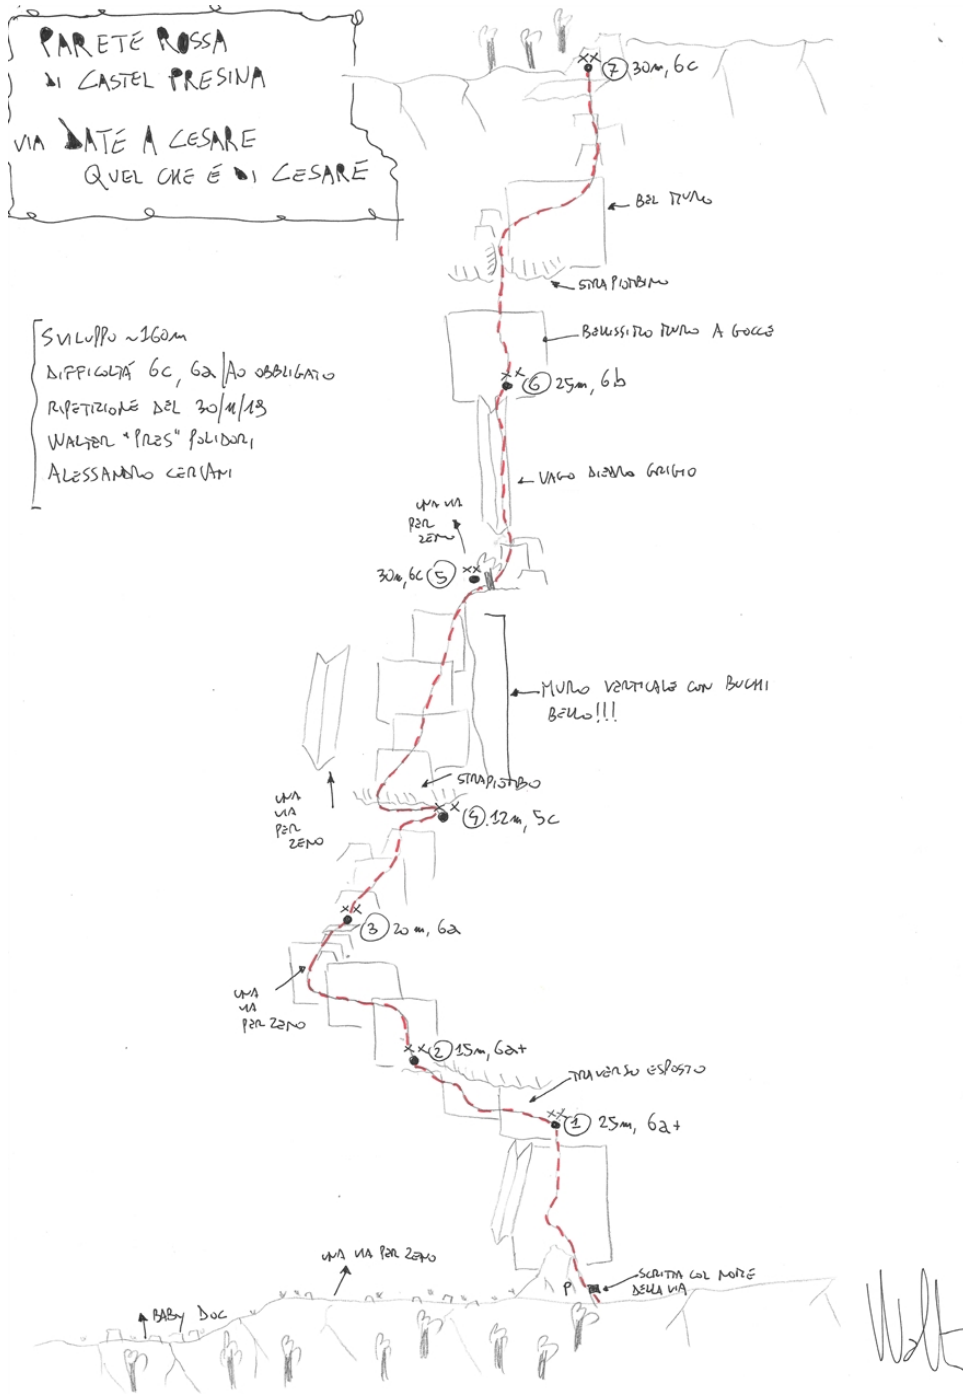 PARETE ROSSA
DI CASTEL PRESINA
VIA DATE A CESARE
QUEL CHE È DI CESARE
SVILUPPO ~160m
DIFFICOLTÁ 6c, 6a/A0 OBBLIGATO
RIPETIZIONE DEL 30/11/19
WALTER "PRES" POLIDORI,
ALESSANDRO CERIANI
7 30m, 6c
BEL MURO
STRAPIOMBINO
BELLISSIMO MURO A GOCCE
6 25m, 6b
VAGO DIEDRO GRIGIO
UNA VIA
PER
ZENO
30m, 6c 5
MURO VERTICALE CON BUCHI
BELLO!!!
STRAPIOMBO
UNA
VIA
PER
ZENO
4 12m, 5c
3 20m, 6a
UNA
VIA
PER ZENO
2 15m, 6a+
TRAVERSO ESPOSTO
1 25m, 6a+
UNA VIA PER ZENO
SCRITTA COL NOME
DELLA VIA
P
BABY DOC
Walt